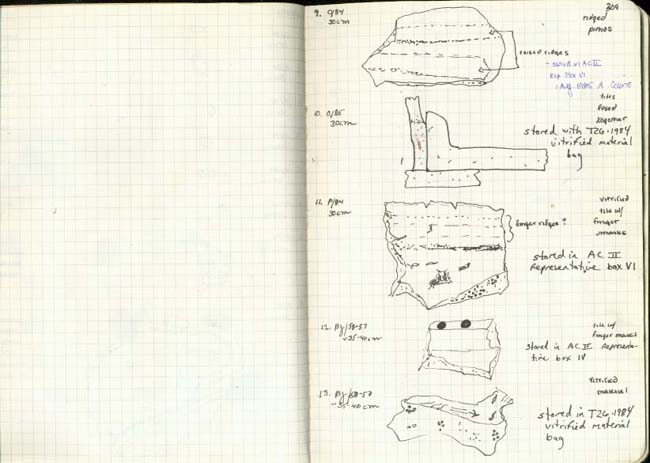 309
9. O/84
30cm
ridged
raised ridges
- stored in AC II
Rep. Box VI
1 Aug. 1985 A.
10. O/85
30cm
tiles
fused
together
stored with TZG.1984
vitrified material
bag
11. P/84
30cm
vitrified
tile w/
finger
marks
finger ridges?
stored in AC II
Representative box VI
12. By/56-57
~35-40cm
tile w/
finger marks
stored in AC II Representa-
tive box IV
13.
~35-40cm
vitrified
material
stored in TZG.1984
vitrified material
bag